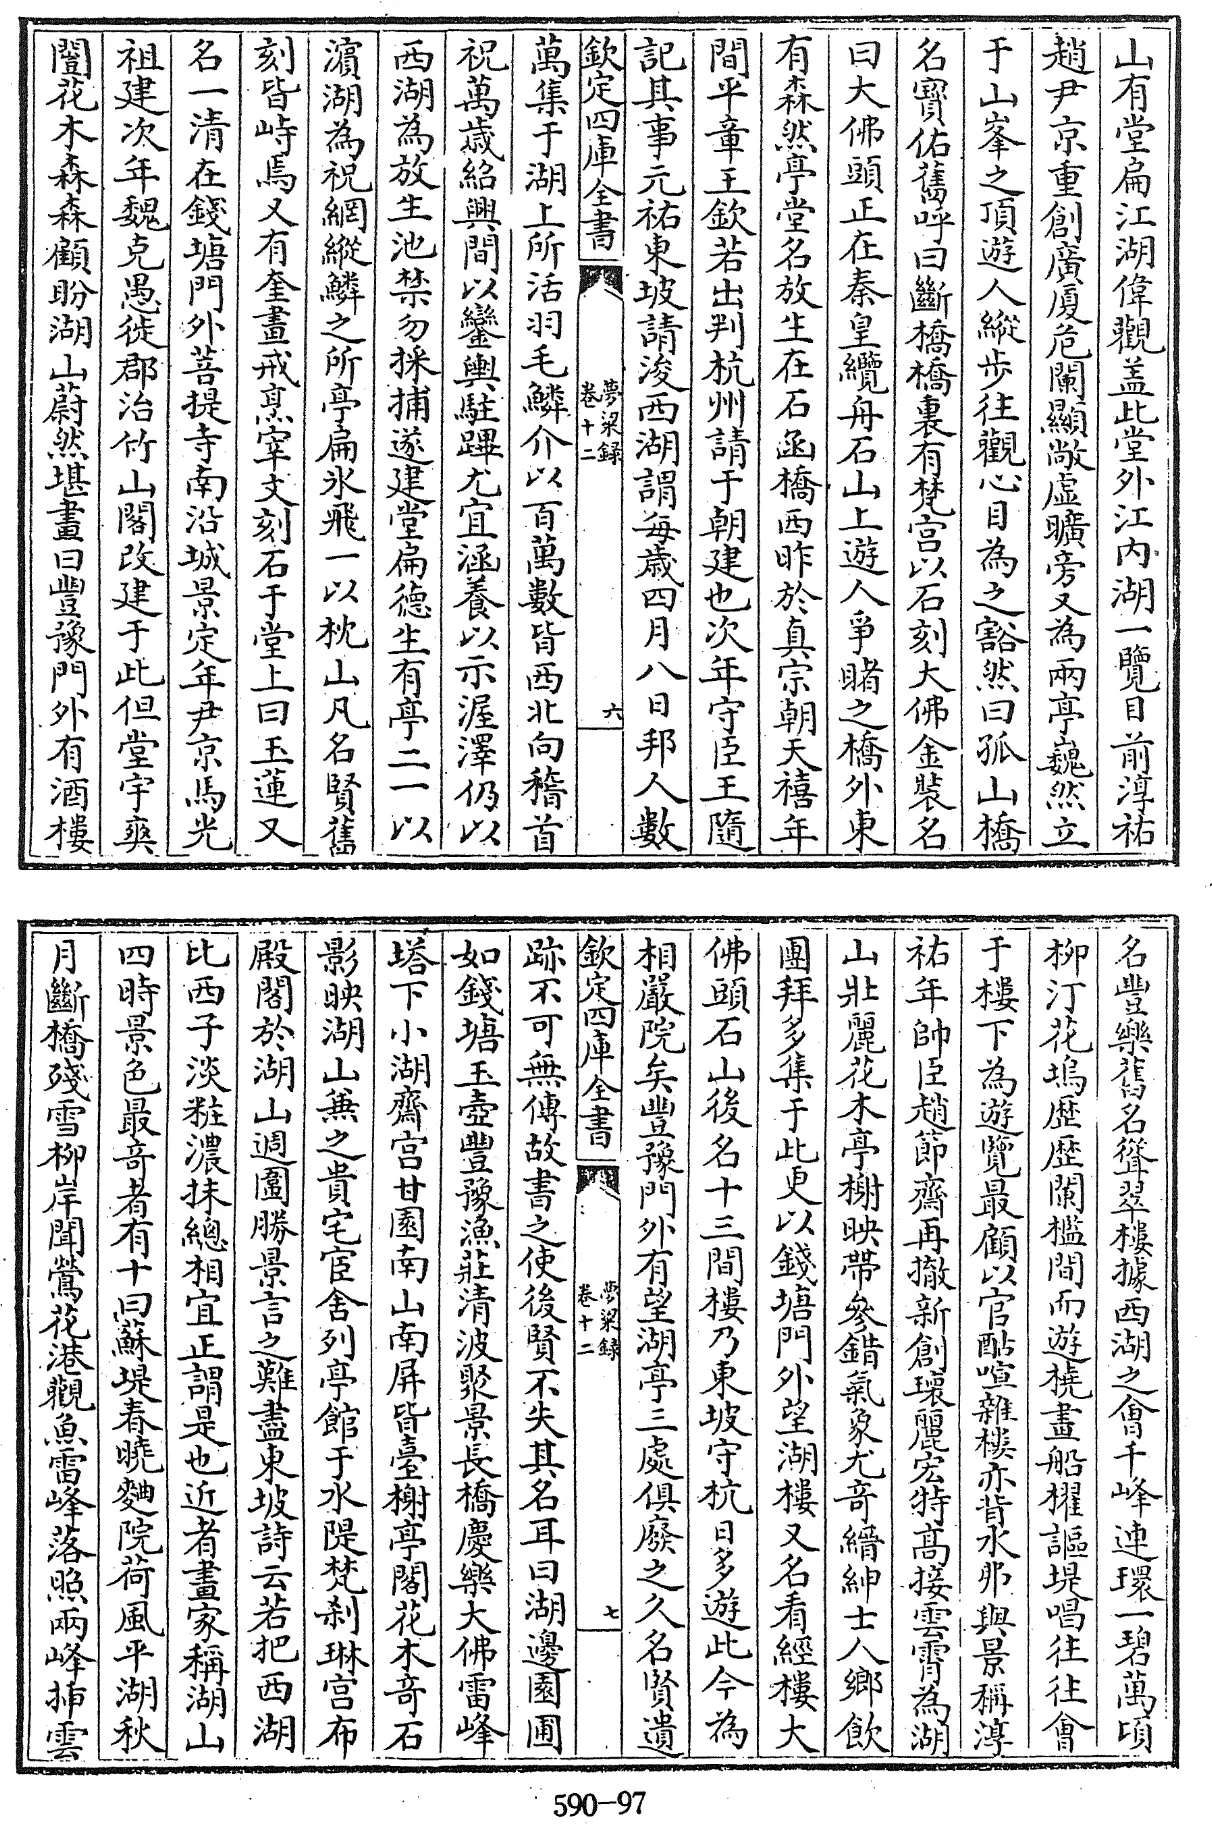 山有堂扁江湖偉觀盖此堂外江内湖一覽目前淳祐
趙尹京重創廣廈危闌顯敞虛曠旁又為兩亭巍然立
于山峯之頂遊人縱步往觀心目為之豁然曰孤山橋
名寳佑舊呼曰斷橋橋裏有梵宫以石刻大佛金裝名
曰大佛頭正在秦皇纜舟石山上遊人爭睹之橋外東
有森然亭堂名放生在石函橋西昨於真宗朝天禧年
間平章王欽若出判杭州請于朝建也次年守臣王隨
記其事元祐東坡請浚西湖謂每歳四月八日邦人數
欽定四庫全書
夢粱録
卷十二
六
萬集于湖上所活羽毛鱗介以百萬數皆西北向稽首
祝萬歳紹興間以鑾輿駐蹕尤宜涵養以示渥澤仍以
西湖為放生池禁勿採捕遂建堂扁德生有亭二一以
濵湖為祝網縱鱗之所亭扁泳飛一以枕山凡名賢舊
刻皆峙焉又有奎畫戒烹宰文刻石于堂上曰玉蓮又
名一清在錢塘門外菩提寺南沿城景定年尹京馬光
祖建次年魏克愚徙郡治竹山閣改建于此但堂宇爽
闓花木森森顧盼湖山蔚然堪畫曰豐豫門外有酒樓
名豐樂舊名聳翠樓據西湖之㑹千峰連環一碧萬頃
柳汀花塢歴歴闌檻間而遊橈畫船櫂謳堤唱往往會
于樓下為遊覽最顧以官酤喧雜樓亦背水弗與景稱淳
祐年帥臣趙節齋再撤新創瓌麗宏特髙接雲霄為湖
山壯麗花木亭榭映帶參錯氣象尤奇縉紳士人鄉飲
團拜多集于此更以錢塘門外望湖樓又名看經樓大
佛頭石山後名十三間樓乃東坡守杭日多遊此今為
相嚴院矣豐豫門外有望湖亭三處俱廢之久名賢遺
欽定四庫全書
夢粱録
卷十二
七
跡不可無傳故書之使後賢不失其名耳曰湖邊園圃
如錢塘玉壺豐豫漁莊清波聚景長橋慶樂大佛雷峰
塔下小湖齋宫甘園南山南屏皆臺榭亭閣花木奇石
影映湖山兼之貴宅宦舍列亭館于水隄梵刹琳宫布
殿閣於湖山週圍勝景言之難盡東坡詩云若把西湖
比西子淡粧濃抹總相宜正謂是也近者畫家稱湖山
四時景色最奇者有十曰蘇堤春曉麯院荷風平湖秋
月斷橋殘雪柳岸聞鶯花港觀魚雷峰落照兩峰揷雲
590-97